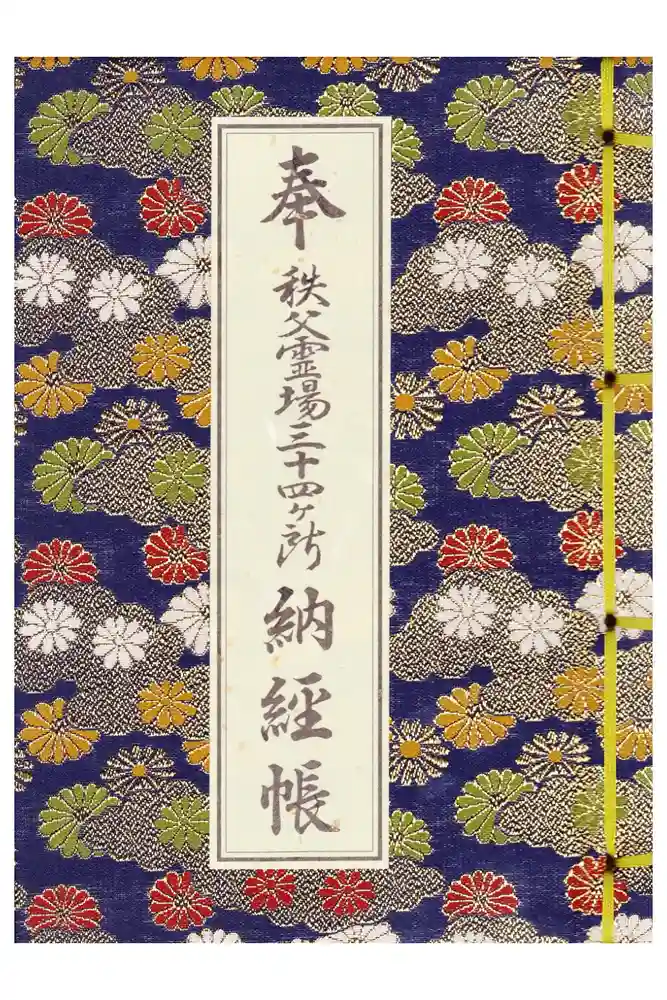 奉 秩父霊場三十四ヶ所 納経帳